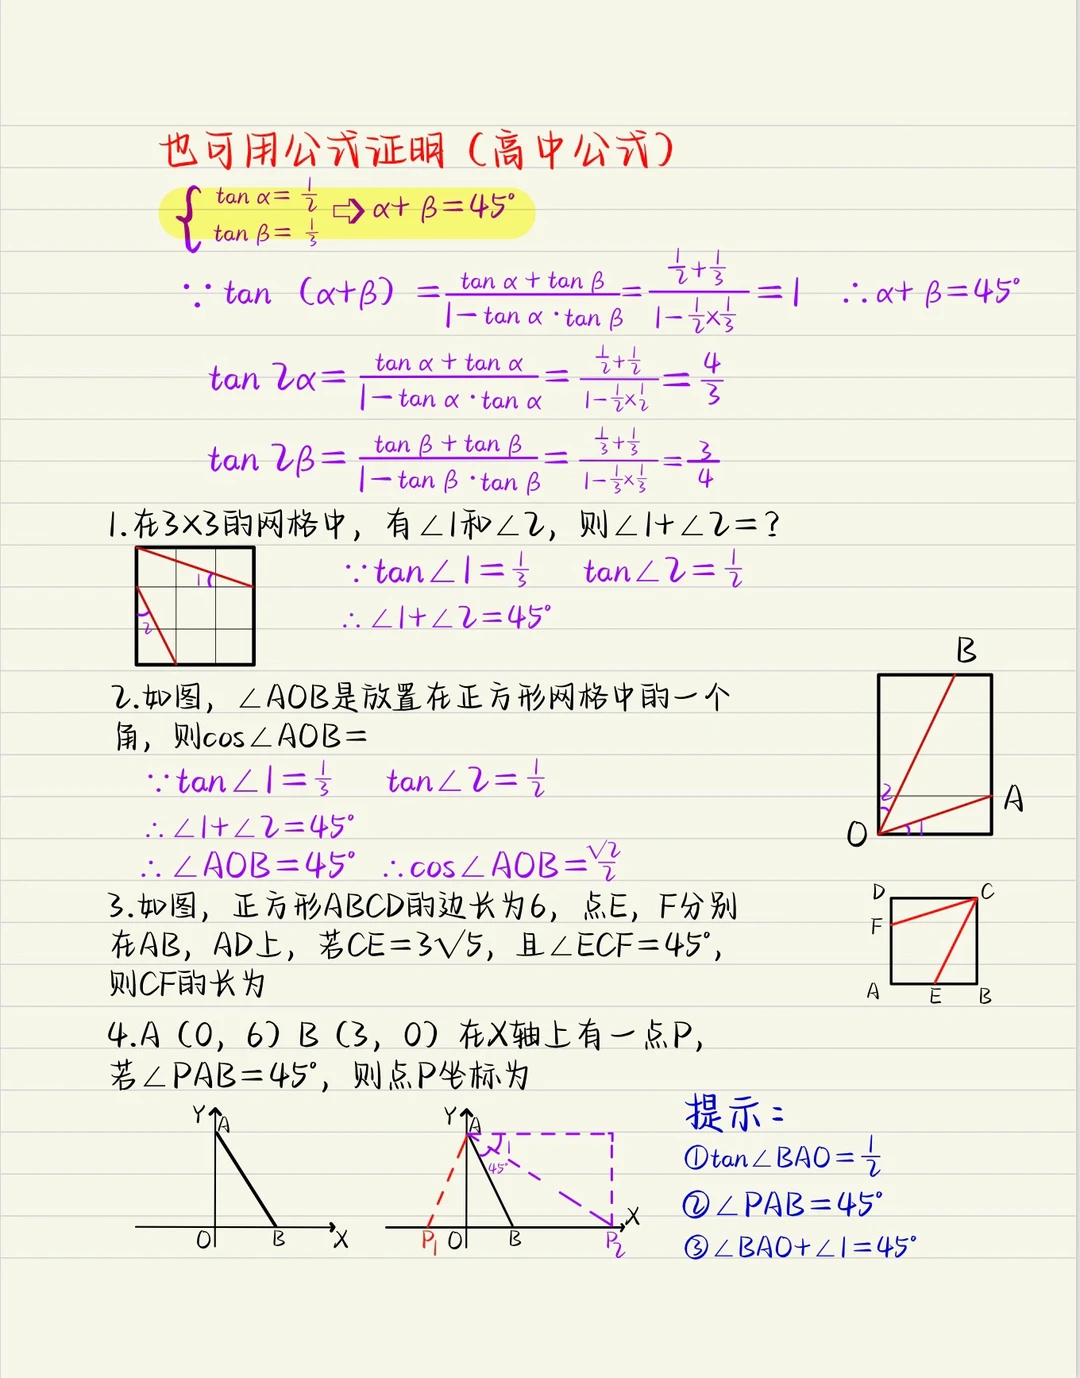 也可用公式证明（高中公式）
{ tan α = 1/2 ⇨ α + β = 45°
tan β = 1/3
∵ tan （α+β） = (tan α + tan β)/(1 − tan α · tan β) = (1/2 + 1/3)/(1 − 1/2 × 1/3) = 1 ∴ α + β = 45°
tan 2α = (tan α + tan α)/(1 − tan α · tan α) = (1/2 + 1/2)/(1 − 1/2 × 1/2) = 4/3
tan 2β = (tan β + tan β)/(1 − tan β · tan β) = (1/3 + 1/3)/(1 − 1/3 × 1/3) = 3/4
1.在3×3的网格中，有∠1和∠2，则∠1+∠2=？
1
2
∵ tan∠1 = 1/3 tan∠2 = 1/2
∴ ∠1+∠2=45°
2.如图，∠AOB是放置在正方形网格中的一个
角，则cos∠AOB=
∵ tan∠1 = 1/3 tan∠2 = 1/2
∴ ∠1+∠2=45°
∴ ∠AOB=45° ∴cos∠AOB=√2/2
B
2
A
O
1
3.如图，正方形ABCD的边长为6，点E，F分别
在AB，AD上，若CE=3√5，且∠ECF=45°，
则CF的长为
D C
F
A E B
4.A（0，6）B（3，0）在X轴上有一点P，
若∠PAB=45°，则点P坐标为
Y A
O B X
Y A
1
45°
P1 O B P2 X
提示：
①tan∠BAO=1/2
②∠PAB=45°
③∠BAO+∠1=45°